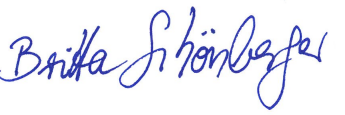 Britta Schönberger